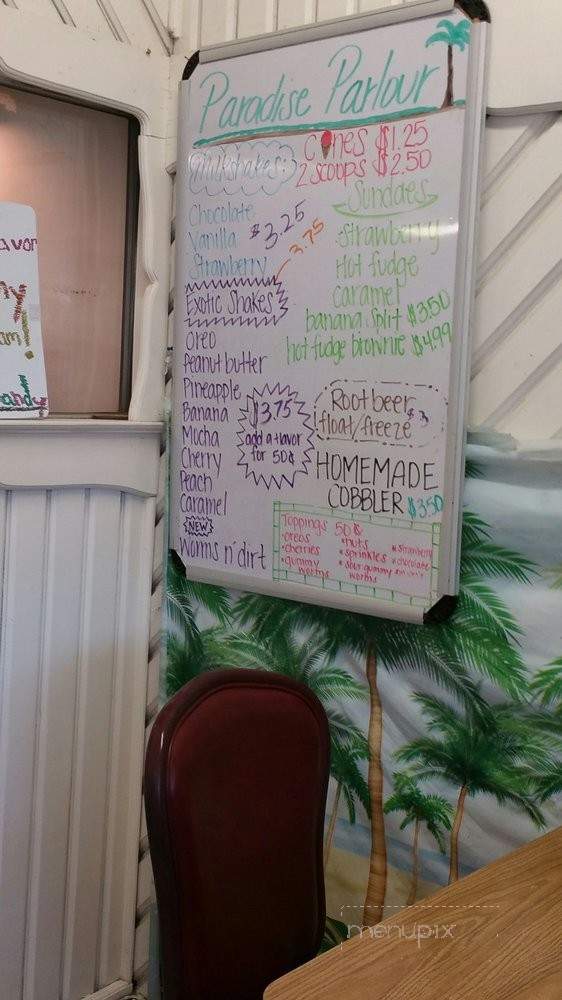 Paradise Parlour
Cones $1.25
2 scoops $2.50
Milkshakes:
Chocolate
Vanilla $3.25
Strawberry 3.75
Exotic Shakes
Oreo
Peanut butter
Pineapple
Banana
Mocha
Cherry
Peach
Caramel
NEW
Worms n' dirt
$3.75
add a flavor
for 50¢
Sundaes
Strawberry
Hot fudge
caramel
banana split $3.50
hot fudge brownie $4.99
Root beer
float/freeze $3
HOMEMADE
COBBLER $3.50
Toppings 50¢
•oreos
•cherries
•gummy
worms
•nuts
•sprinkles
•sour gummy
worms
•strawberry
•chocolate
avor
menupix